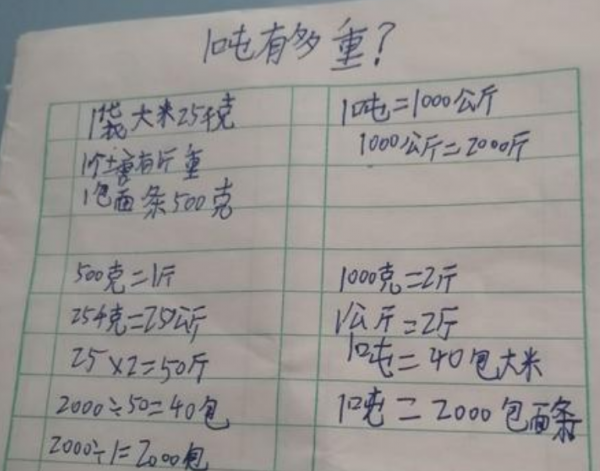 1吨有多重?
1袋大米25千克
1吨=1000公斤
1000公斤=2000斤
1个土
有斤重
1包面条500克
500克=1斤
1000克=2斤
25千克=25公斤
1公斤=2斤
25×2=50斤
1吨=40包大米
2000÷50=40包
1吨=2000包面条
2000÷1=2000包